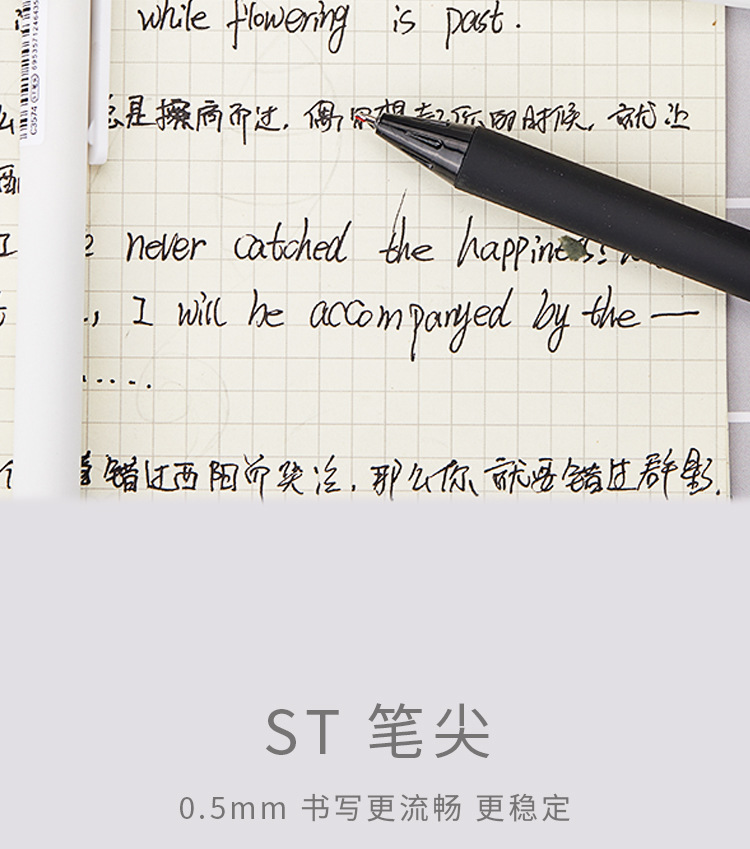 while flowering is past.
总是擦肩而过，偶尔想起你的时候，就让
never catched the happiness!
I will be accompanyed by the —
.....
错过西阳而哭泣，那么你就要错过群星.
C3574
ST 笔尖
0.5mm 书写更流畅 更稳定